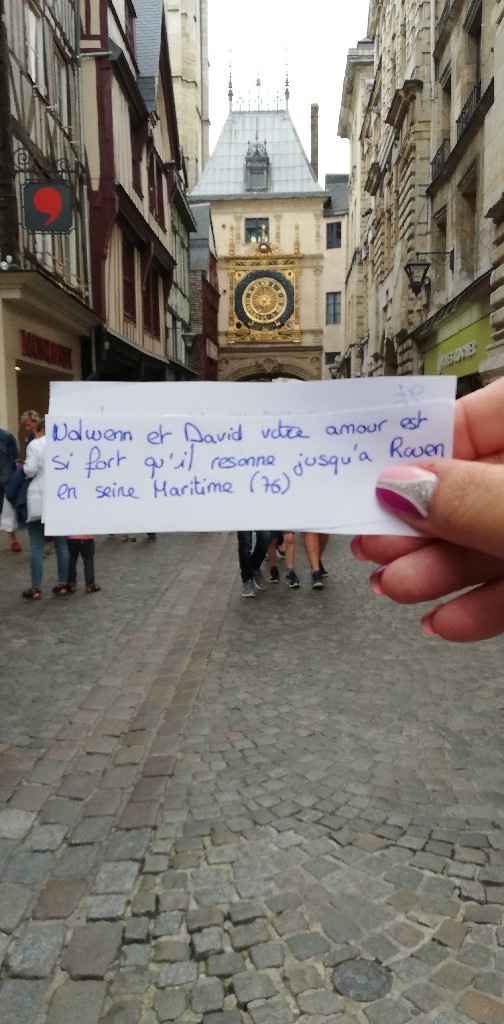 Nolwenn et David votre amour est
si fort qu'il resonne jusqu'a Rouen
en seine Maritime (76)